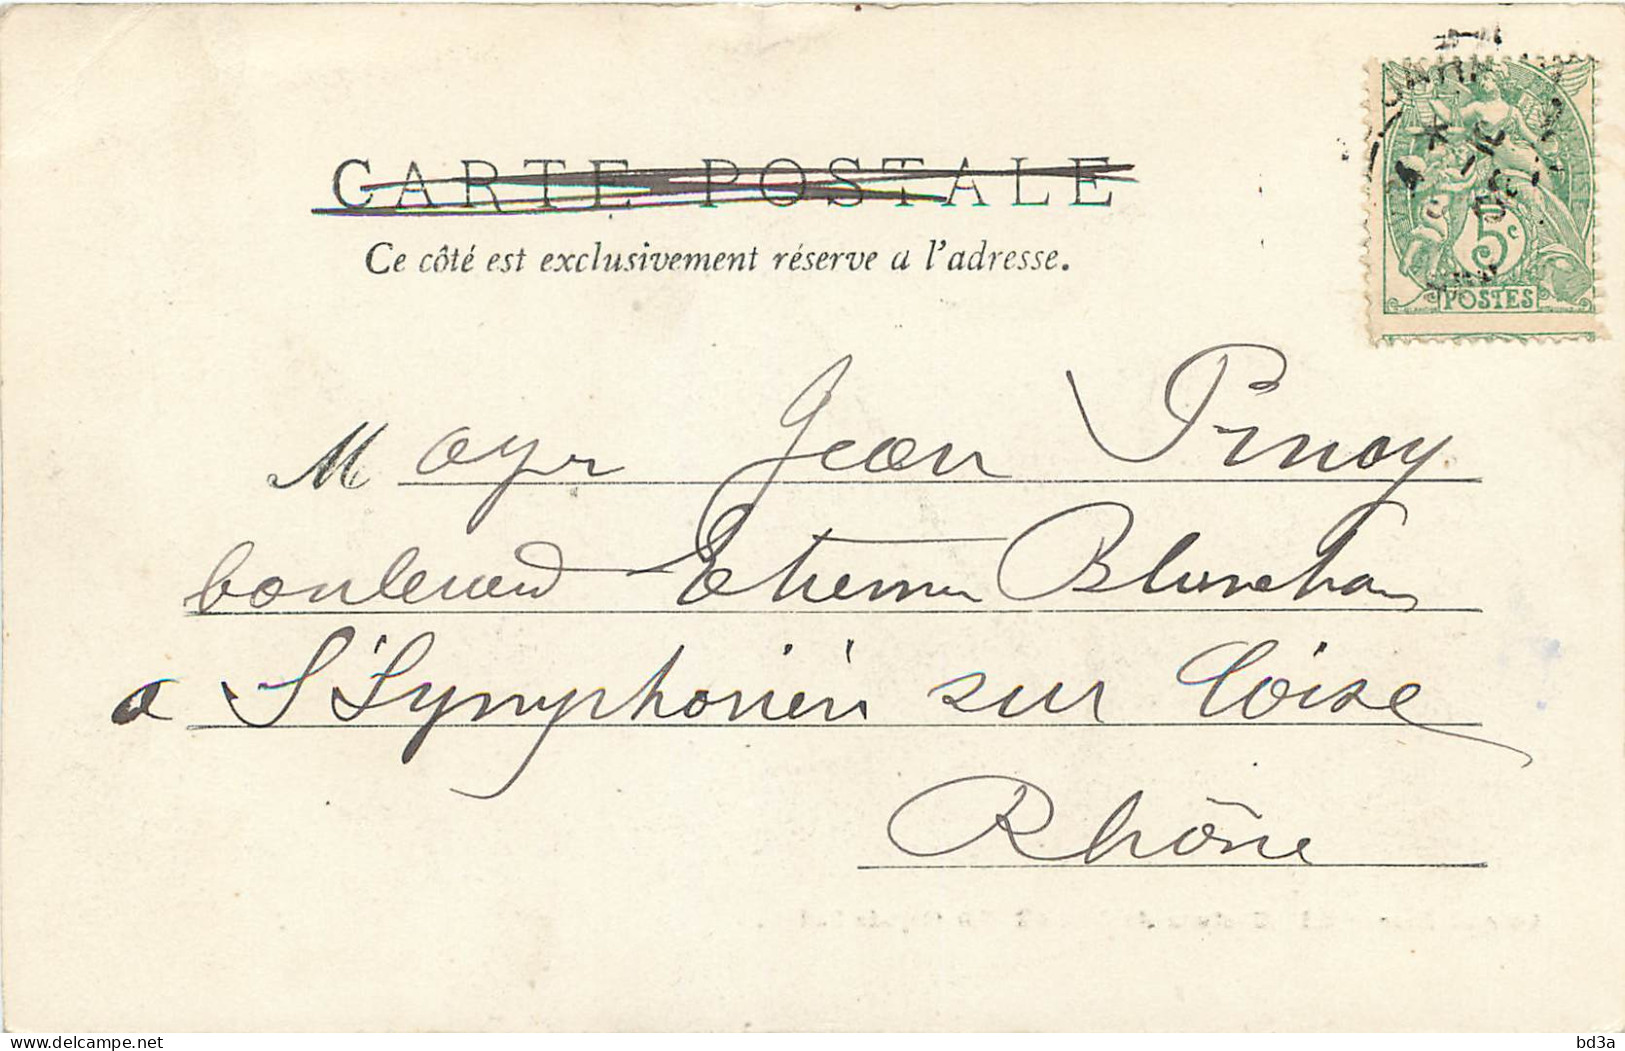 CARTE POSTALE
Ce côté est exclusivement réserve a l'adresse.
5c
POSTES
M ayr Jean Pinay
boulevard Etienne
a St Symphorien sur Coise
Rhône
bd3a